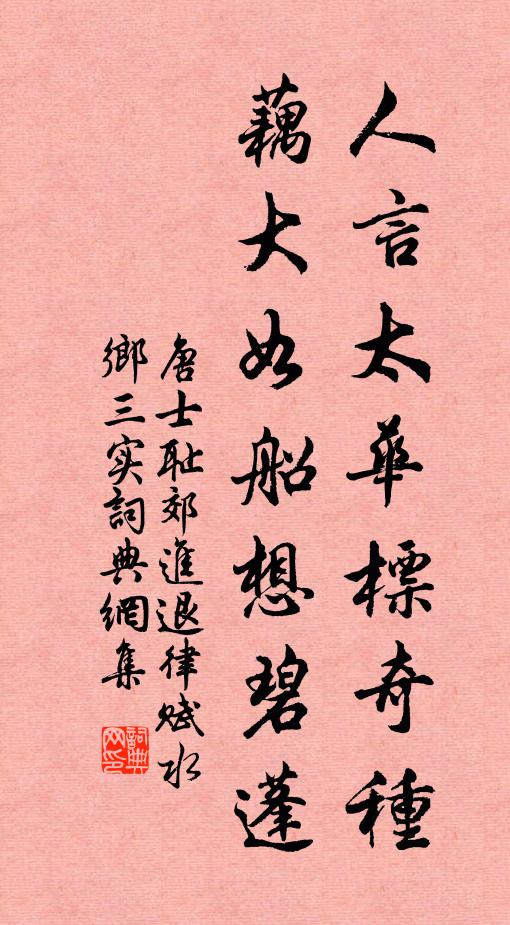 人言太華標奇種
藕大如船想碧蓬
唐士耻郊進退律賦水
鄉三实詞典網集
詞典网印